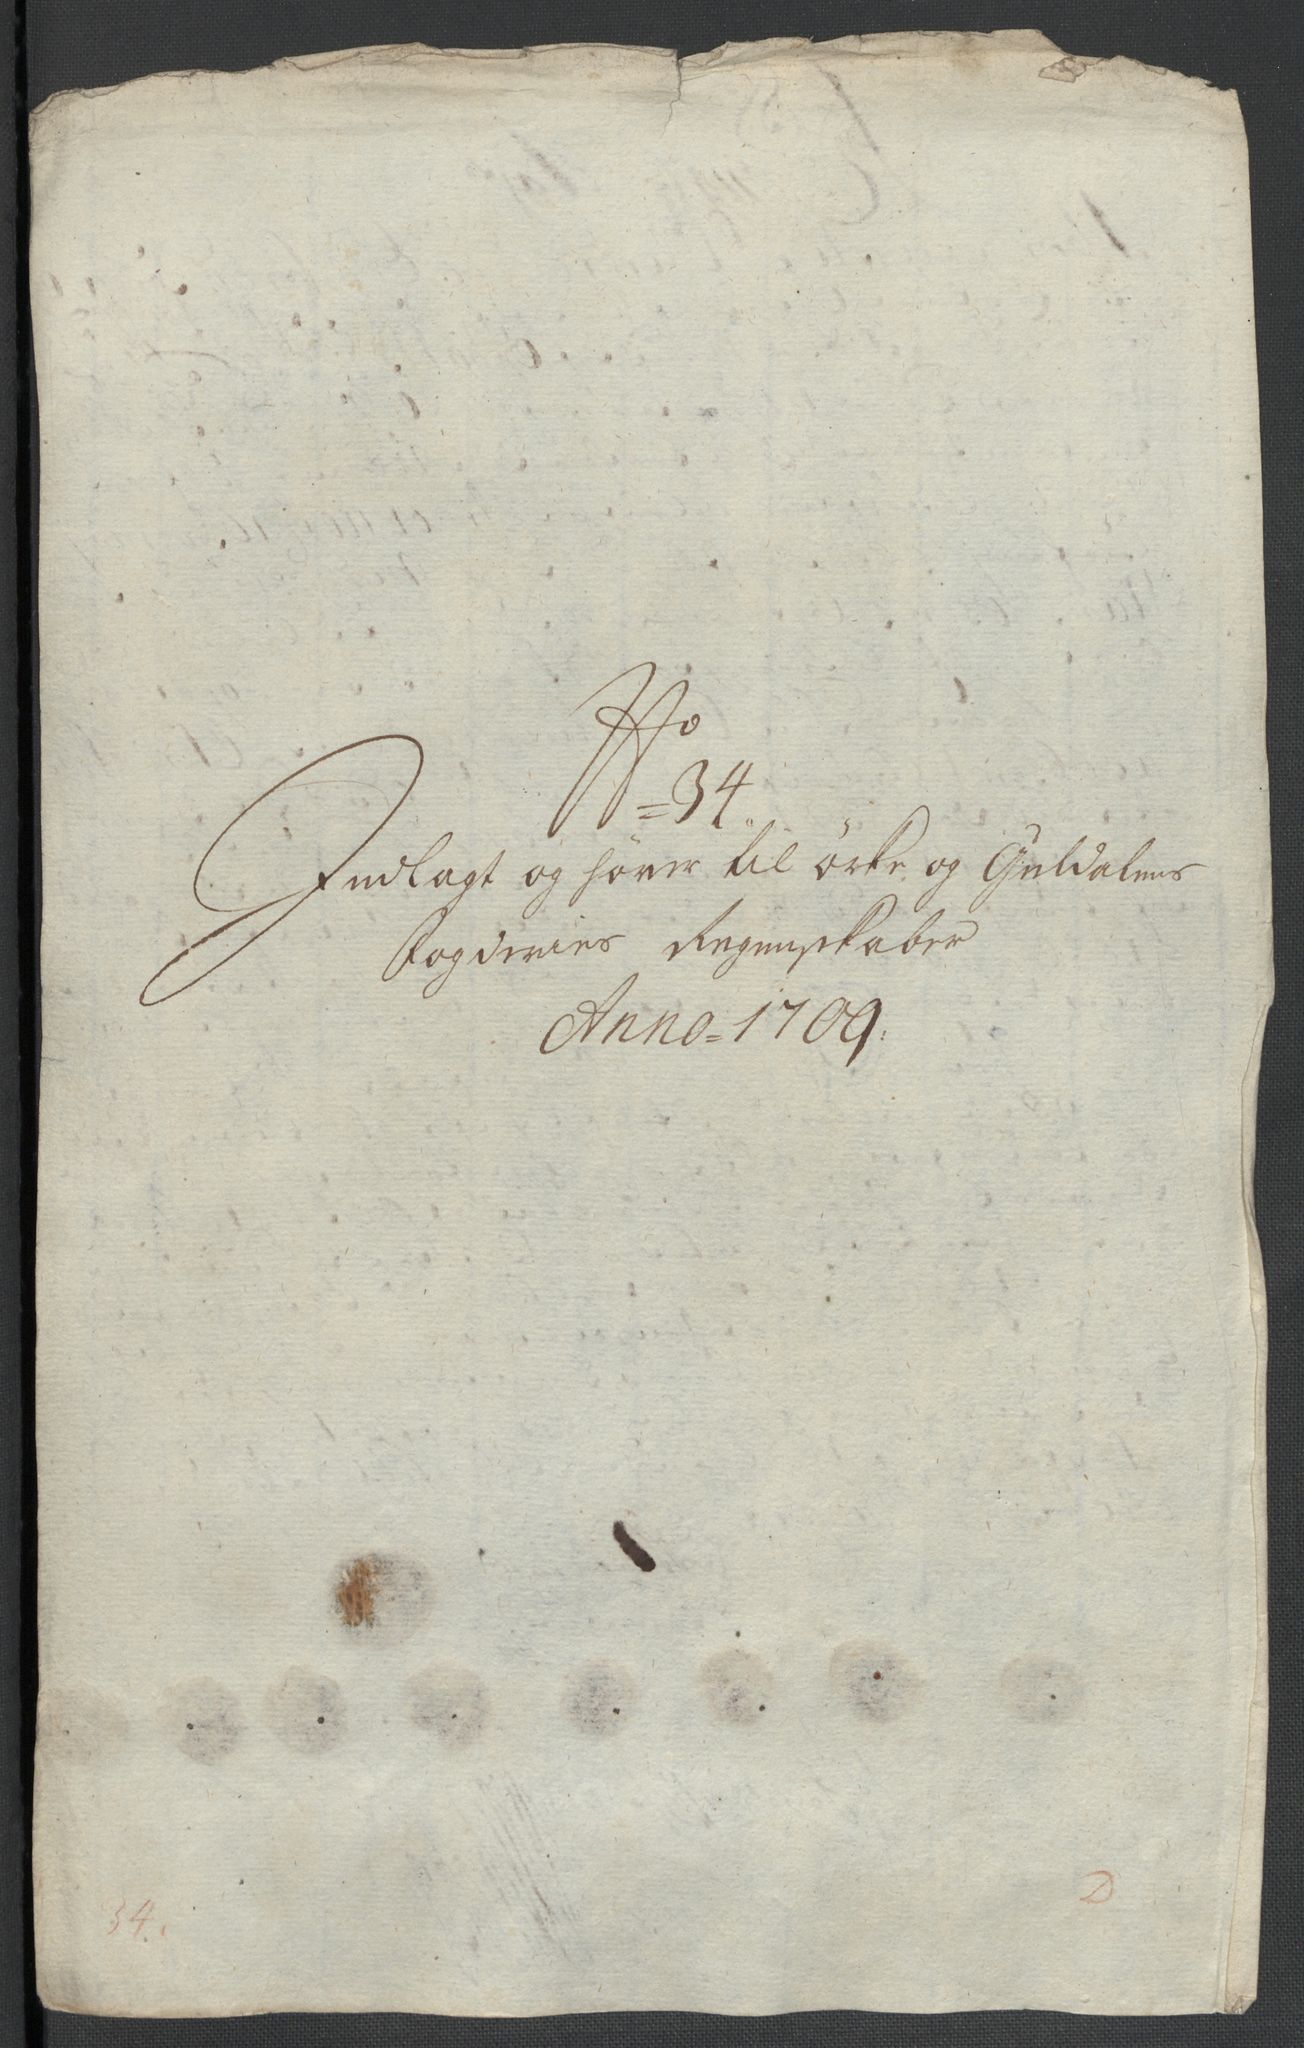 No
=34.
Indlagt og hører til örke og Guldalens
Fogderies Regenskaber
Anno=1709.
34.
D